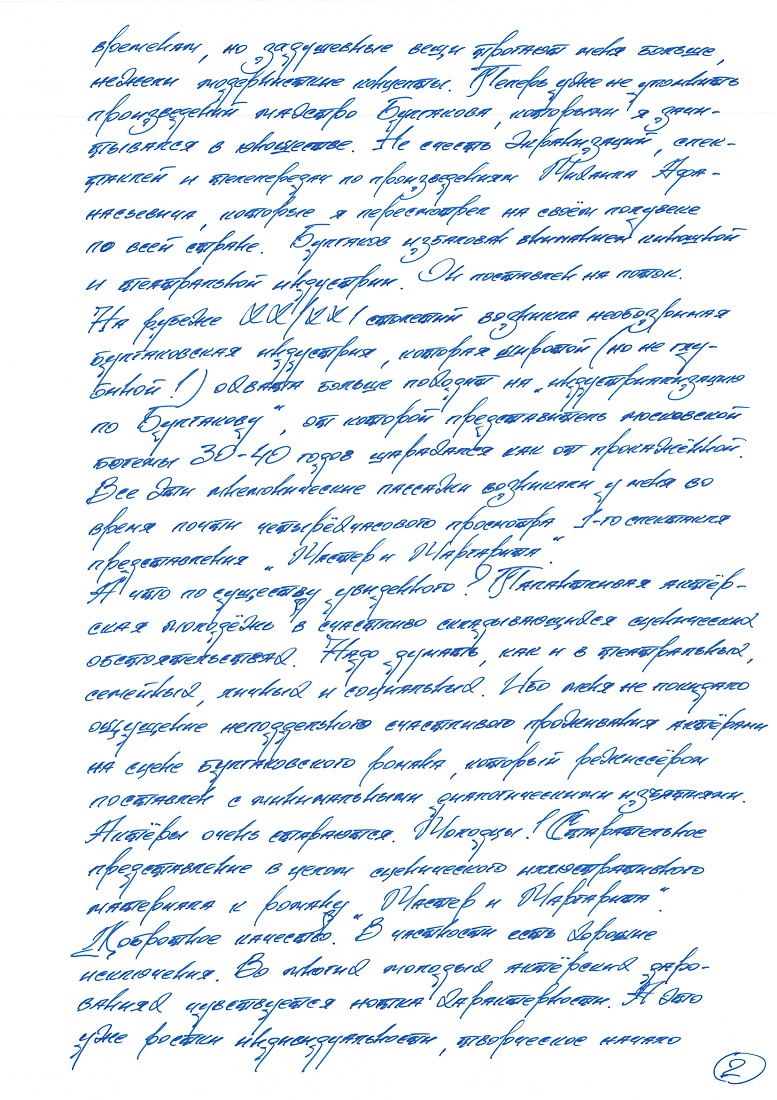 временам, но задушевные вещи трогают меня больше,
нежели модернистские концепты. Теперь уже не упомнить
произведений маэстро Булгакова, которыми я зачи-
тывался в юношестве. Не счесть экранизаций, спек-
таклей и телепередач по произведениям Михаила Афа-
насьевича, которые я пересмотрел на своём полувеке
по всей стране. Булгаков избалован вниманием киношной
и театральной индустрии. Он поставлен на поток.
На рубеже XX/XXI столетий возникла необозримая
булгаковская индустрия, которая широтой (но не глу-
биной!) охвата больше походит на „индустриализацию
по Булгакову", от которой представитель московской
богемы 30-40 годов шарахался как от прокажённой.
Все эти мнемонические пассажи возникали у меня во
время почти четырёхчасового просмотра 1-го спектакля
представления „Мастер и Маргарита".
А что по существу увиденного? Талантливая актёр-
ская молодёжь в счастливо складывающихся сценических
обстоятельствах. Надо думать, как и в театральных,
семейных, личных и социальных. Ибо меня не покидало
ощущение неподдельного счастливого проживания актёрами
на сцене булгаковского романа, который режиссёром
поставлен с минимальными диалогическими изъятиями.
Актёры очень стараются. Молодцы! Старательное
представление в целом сценического иллюстративного
материала к роману „Мастер и Маргарита".
Добротное качество. В частности есть хорошие
исключения. Во многих молодых актёрских даро-
ваниях чувствуется нотка характерности. А это
уже ростки индивидуальности, творческое начало
2